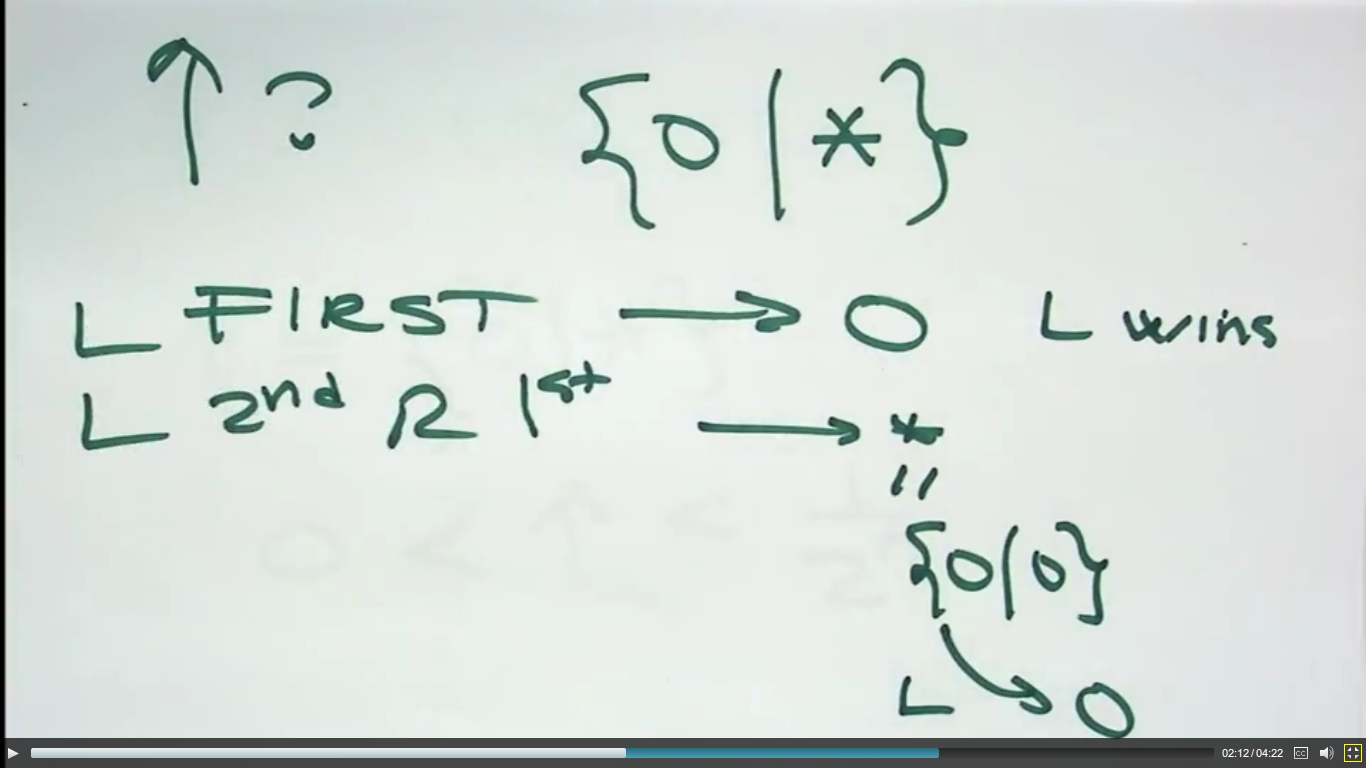 ↑ ? {0|*}
L FIRST → 0 L wins
L 2nd R 1st → *
"
{0|0}
L → 0
02:12/04:22 CC